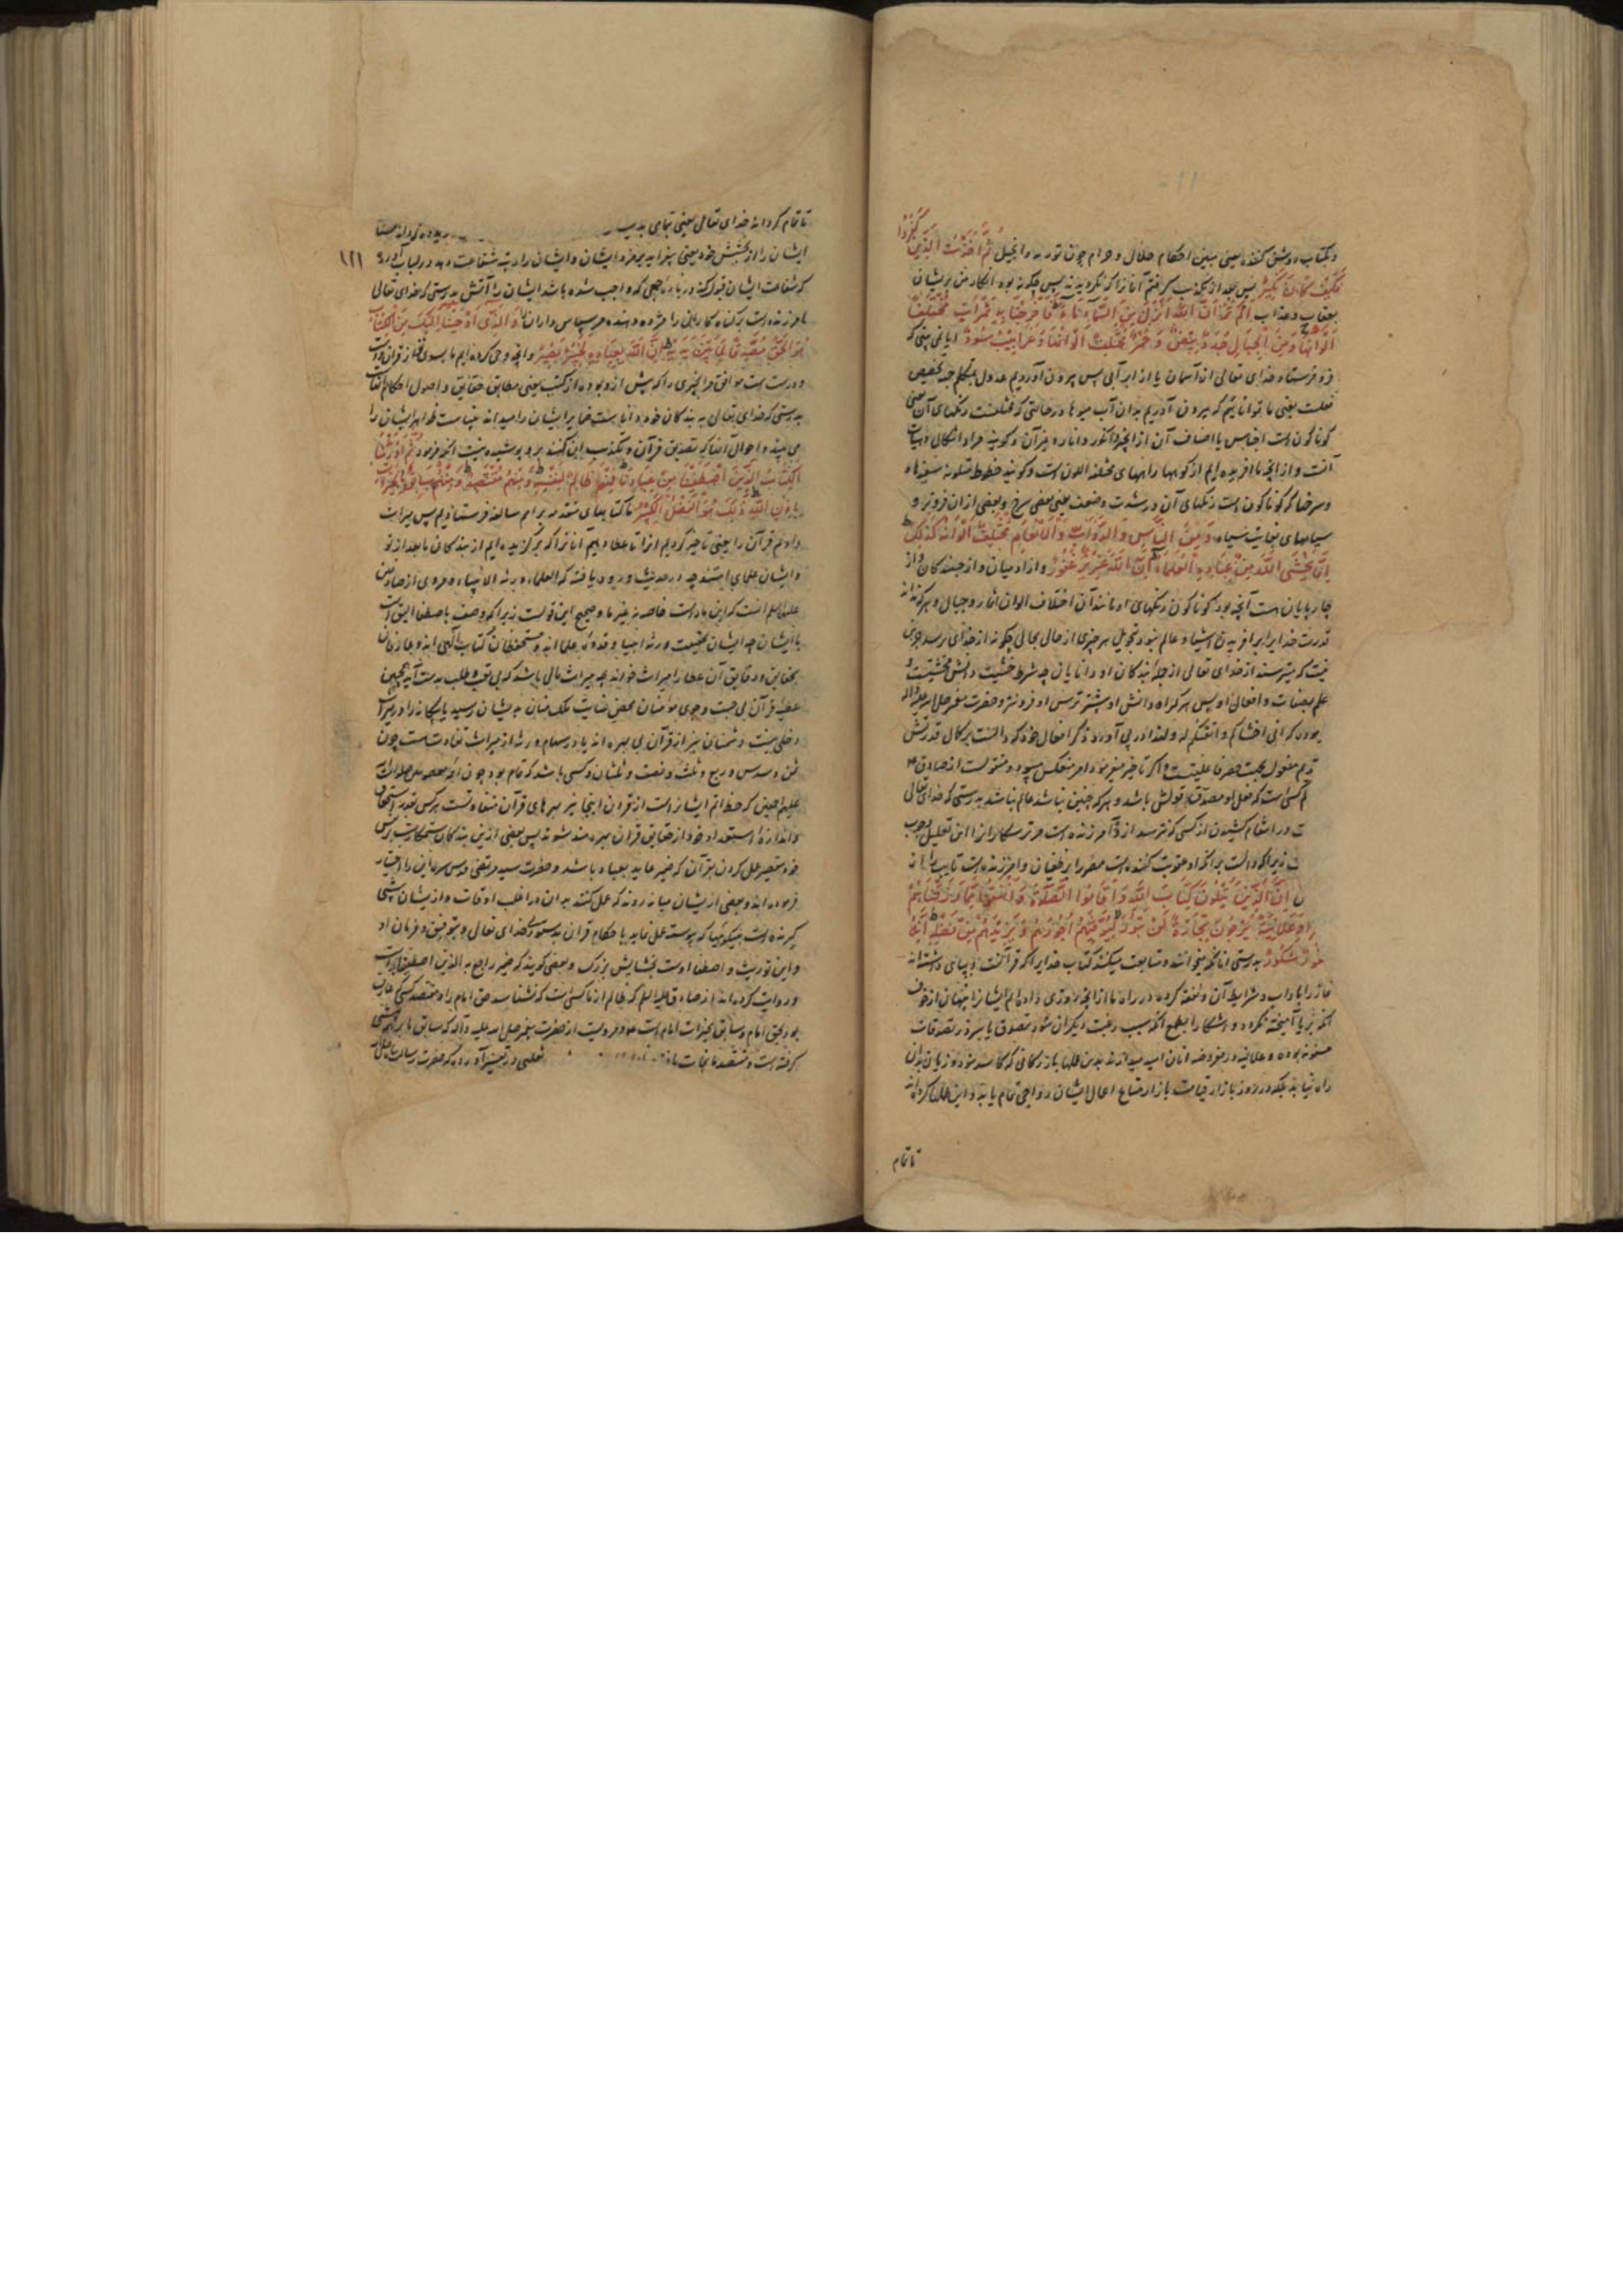 و بکتاب روشن کننده یعنی مبین احکام حلال و حرام چون توریه و انجیل ثُمَّ اَخَذْتُ الَّذینَ کَفَرُوا
فَکَیْفَ کانَ نَکیرِ پس بعد از تکذیب گرفتم آنانرا که نگرویدند پس چگونه بود انکار من بریشان
بعقاب و عذاب اَلَمْ تَرَ اَنَّ اللّهَ اَنْزَلَ مِنَ السَّماءِ ماءً فَاَخْرَجْنا بِه ثَمَراتٍ مُخْتَلِفًا
اَلْوانُها وَ مِنَ الْجِبالِ جُدَدٌ بیضٌ وَ حُمْرٌ مُخْتَلِفٌ اَلْوانُها وَ غَرابیبُ سُودٌ ایا نمی بینی که
فرو فرستاد خدای تعالی از آسمان یا از ابر آبی پس بیرون آوردیم عدول بتکلم جهة تخصیص
فعلست یعنی ما تواناییم که بیرون آوریم بدان آب میوها در حالتی که مختلفست رنگهای آن یعنی
گوناگون است اجناس یا اصناف آن از انجیر و انگور و انار و غیر آن و گویند مراد اشکال و هیات
آنست و از انچه ما افریده ایم از کوهها راههای مختلفه اللون است و گویند خطوط متلونه سفیدها
و سرخها که گوناگون است رنگهای آن در شدت و ضعف یعنی بعضی سرخ و بعضی از ان فروتر و
سیاههای بغایت سیاه وَ مِنَ النّاسِ وَ الدَّوابِّ وَ الْاَنْعامِ مُخْتَلِفٌ اَلْوانُهُ کَذلِکَ
اِنَّما یَخْشَی اللّهَ مِنْ عِبادِهِ الْعُلَماءُ اِنَّ اللّهَ عَزیزٌ غَفُورٌ و از ادمیان و از جنبندگان و از
چارپایان هست آنچه بود گوناگون رنگهای او مانند آن اختلاف الوان اثمار و جبال و هر که نداند
قدرت خدایرا بر افریدن اشیا و عالم نبود بتحویل هر چیزی از حالی بحالی چگونه از خدای برسد جز این
نیست که میترسند از خدای تعالی از جمله بندگان او دانایان چه شرط خشیت دانش مخشیست و
علم بصفات و افعال او پس هر کرا دانش او بیشتر ترس او فزونتر و حضرت پیغمبر صلی الله علیه و اله
بود که انی اخشاکم و اتقیکم له و لهذا در پی آورد ذکر افعال خود که دالست بر کمال قدرتش
تقدیم مفعول بجهت حصر فاعلیت است و اگر تاخیر میفرمود امر منعکس میبود و منقولست از صادق ع
کسی است که فعل او مصدق قولش باشد و هر که چنین نباشد عالم نباشد بدرستی که خدای تعالی
ت در انتقام کشیدن از کسی که نترسد از و آمرزنده است مر ترسکارانرا این تعلیل وجوب
ت زیرا که دالست بر انکه او عقوبت کننده است مصررا بر طغیان و آمرزنده است تایب را
اِنَّ الَّذینَ یَتْلُونَ کِتابَ اللّهِ وَ اَقامُوا الصَّلوةَ وَ اَنْفَقُوا مِمّا رَزَقْناهُمْ
سِرًّا وَ عَلانِیَةً یَرْجُونَ تِجارَةً لَنْ تَبُورَ لِیُوَفِّیَهُمْ اُجُورَهُمْ وَ یَزیدَهُمْ مِنْ فَضْلِه اِنَّهُ
غَفُورٌ شَکُورٌ بدرستی انانکه میخوانند و متابعت میکنند کتاب خدایرا که قرآنست و بپای داشته اند
نماز را باداب و شرایط آن و نفقه کرده در راه ما از انچه روزی داده ایم ایشانرا پنهان از خوف
انکه بریا آمیخته نگردد و اشکارا بطمع انکه سبب رغبت دیگران شود بتصدق یا سر در تصدقات
مسنونه بوده و علانیه در مفروضه انان امید میدارند بدین عملها بازرگانی که کاسد نشود و زیان بدان
راه نیابد بلکه در روز بازار قیامت بازار متاع اعمال ایشان رواجی تمام یابد و این عملها کرده اند
تا تمام
تا تمام گرداند خدای تعالی یعنی بتمامی بدیشان
ایشان را از بخشش خود یعنی بیفزاید بر مزد ایشان و ایشان را رتبه شفاعت دهد و در لباب آورده
که شفاعت ایشان قبول کند در باره جمعی که واجب شده باشد ایشان را آتش بدرستی که خدای تعالی
امرزنده است بر گناه گاران را مزد دهنده مر سپاس داران را وَ الَّذی اَوْحَیْنا اِلَیْکَ مِنَ الْکِتابِ
هُوَ الْحَقُّ مُصَدِّقًا لِما بَیْنَ یَدَیْهِ اِنَّ اللّهَ بِعِبادِه لَخَبیرٌ بَصیرٌ و آنچه وحی کرده ایم ما بسوی تو از قران راست
و درست است موافق مر انچیزی را که پیش ازو بوده از کتب یعنی مطابق حقایق و اصول احکام
بدرستی که خدای تعالی به بندگان خود داناست ضمایر ایشان را میداند بیناست ظواهر ایشان را
می بیند و احوال آنها که تصدیق قرآن و تکذیب این کنند برو پوشیده نیست انچه فرمود ثُمَّ اَوْرَثْنَا
الْکِتابَ الَّذینَ اصْطَفَیْنا مِنْ عِبادِنا فَمِنْهُمْ ظالِمٌ لِنَفْسِه وَ مِنْهُمْ مُقْتَصِدٌ وَ مِنْهُمْ سابِقٌ بِالْخَیْراتِ
بِاِذْنِ اللّهِ ذلِکَ هُوَ الْفَضْلُ الْکَبیرُ ما کتابهای متقدمه بر امم سالفه فرستادیم پس میراث
دادیم قرآن را یعنی تاخیر کردیم انرا تا عطا دهیم انانرا که برگزیده ایم از بندگان ما بعد از تو
و ایشان علمای امتند چه در حدیث ورود یافته که العلماء ورثة الانبیاء و مروی از صادقین
علیهما السلم انست که این ما راست خاصه نه غیر ما و صحیح این قولست زیرا که وصف باصطفا الیق است
با ایشان چه ایشان بحقیقت ورثه انبیا و قدوه علما اند و مستحفظان کتاب الهی اند و عارفان
بحقایق و دقایق آن عطا را میراث خواند چه میراث مالی باشد که بی تعب و طلب بدست آید همچنین
عطیه قرآن بی جست و جوی مؤمنان بمحض عنایت ملک منان بدیشان رسید یا بیگانه را در میراث
دخلی نیست دشمنان نیز از قرآن بی بهره اند یا در سهام ورثه از میراث تفاوت است چون
ثمن و سدس و ربع و ثلث و نصف و ثلثان و کسی باشد که تمام برد چون ائمه معصومین صلوات الله
علیهم اجمعین که حظ اتم ایشانراست از قران اینجا نیز بهرهای قرآن متفاوتست هر کس بقدر استحقاق
و اندازه استعداد خود از حقایق قران بهره مند شوند پس بعضی ازین بندگان ستمکارست بر نفس
خود بتقصیر عمل کردن بقرآن که ضمیر عاید بعباد باشد و حضرت سید مرتضی قدس سره این را اختیار
فرموده اند و بعضی ازیشان میانه روند که عمل کنند بدان در اغلب اوقات و ازیشان پیشی
گیرنده است بنیکوییها که پیوسته عمل نماید با حکام قران بدستوری خدای تعالی و بتوفیق و فرمان او
و این توریث و اصطفا اوست بخشایش بزرگ و بعضی گویند که ضمیر راجع به الذین اصطفینا است
و روایت کرده اند از صادق علیه السلم که ظالم از ما کسی است که نشناسد حق امام را و مقتصد کسی که عارف
بود بحق امام و سابق بخیرات امام است و مرویست از حضرت پیغمبر صلی الله علیه و آله که سابق ما پیشی
گرفته است و مقتصد ما نجات یافته ثعلبی در تفسیر آورده که حضرت رسالت
۱۲۱